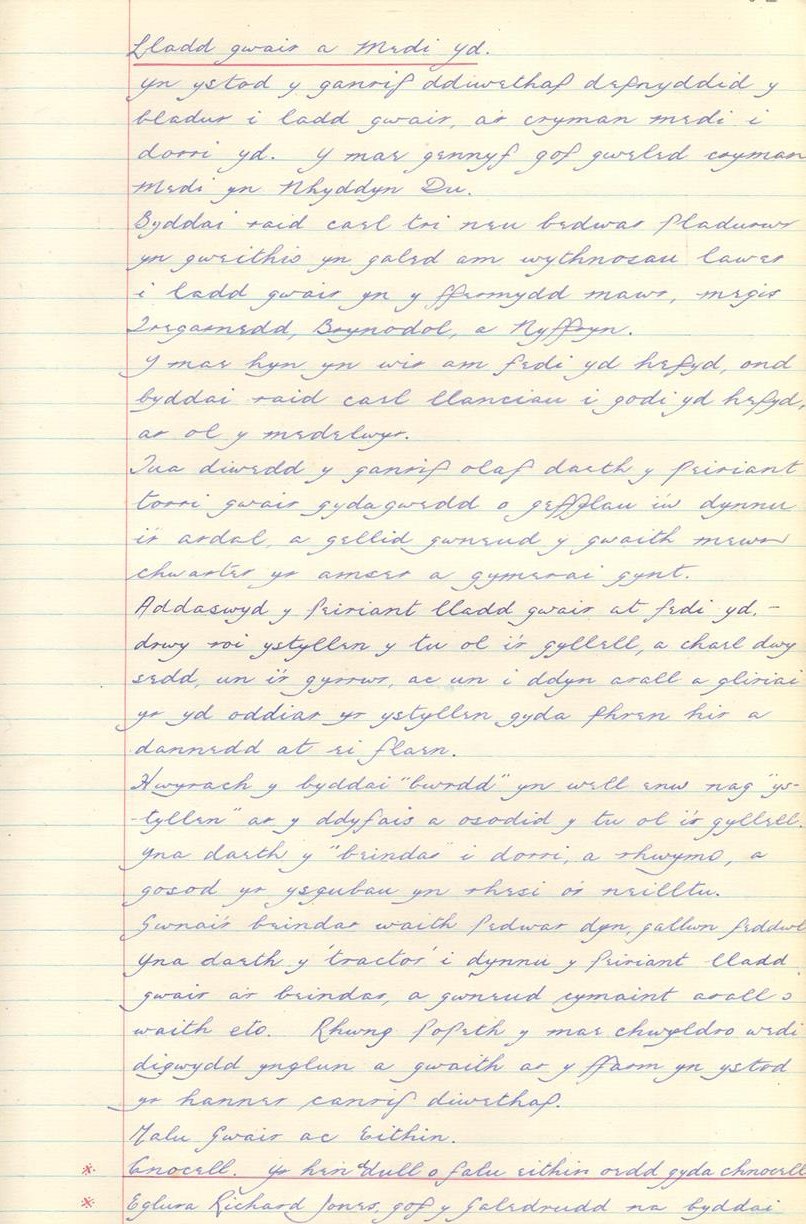 Lladd gwair a Medi yd.
Yn ystod y ganrif ddiwethaf defnyddid y
bladur i ladd gwair, a'r cryman medi i
dorri yd. Y mae gennyf gof gweled cryman
medi yn Nhyddyn Du.
Byddai raid cael tri neu bedwar pladurwr
yn gweithio yn galed am wythnosau lawer
i ladd gwair yn y ffermydd mawr, megis
Tregarnedd, Brynodol, a Nyffryn.
Y mae hyn yn wir am fedi yd hefyd, ond
byddai raid cael llanciau i godi yd hefyd,
ar ol y medelwyr.
Tua diwedd y ganrif olaf daeth y peiriant
torri gwair gydagwedd o geffylau i'w dynnu
i'r ardal, a gellid gwneud y gwaith mewn
chwarter yr amser a gymerai gynt.
Addaswyd y peiriant lladd gwair at fedi yd. -
drwy roi ystyllen y tu ol i'r gyllell, a chael dwy
sedd, un i'r gyrrwr, ac un i ddyn arall a gliriai
yr yd oddiar yr ystyllen gyda phren hir a
dannedd at ei flaen.
Hwyrach y byddai "bwrdd" yn well enw nag "ys-
-tyllen" ar y ddyfais a osodid y tu ol i'r gyllell.
Yna daeth y "beindar" i dorri, a rhwymo, a
gosod yr ysgubau yn rhesi o'r neilltu.
Gwnai'r beindar waith pedwar dyn, gallwn feddwl
Yna daeth y 'tractor' i dynnu y peiriant lladd
gwair a'r beindar, a gwneud cymaint arall o
waith eto. Rhwng popeth y mae chwyldro wedi
digwydd ynglun a gwaith ar y ffarm yn ystod
yr hanner canrif diwethaf.
Malu Gwair ac Eithin.
* Cnocell. Yr hen ddull o falu eithin oedd gyda chnocell
* Eglura Richard Jones, gof y Galedrudd na byddai